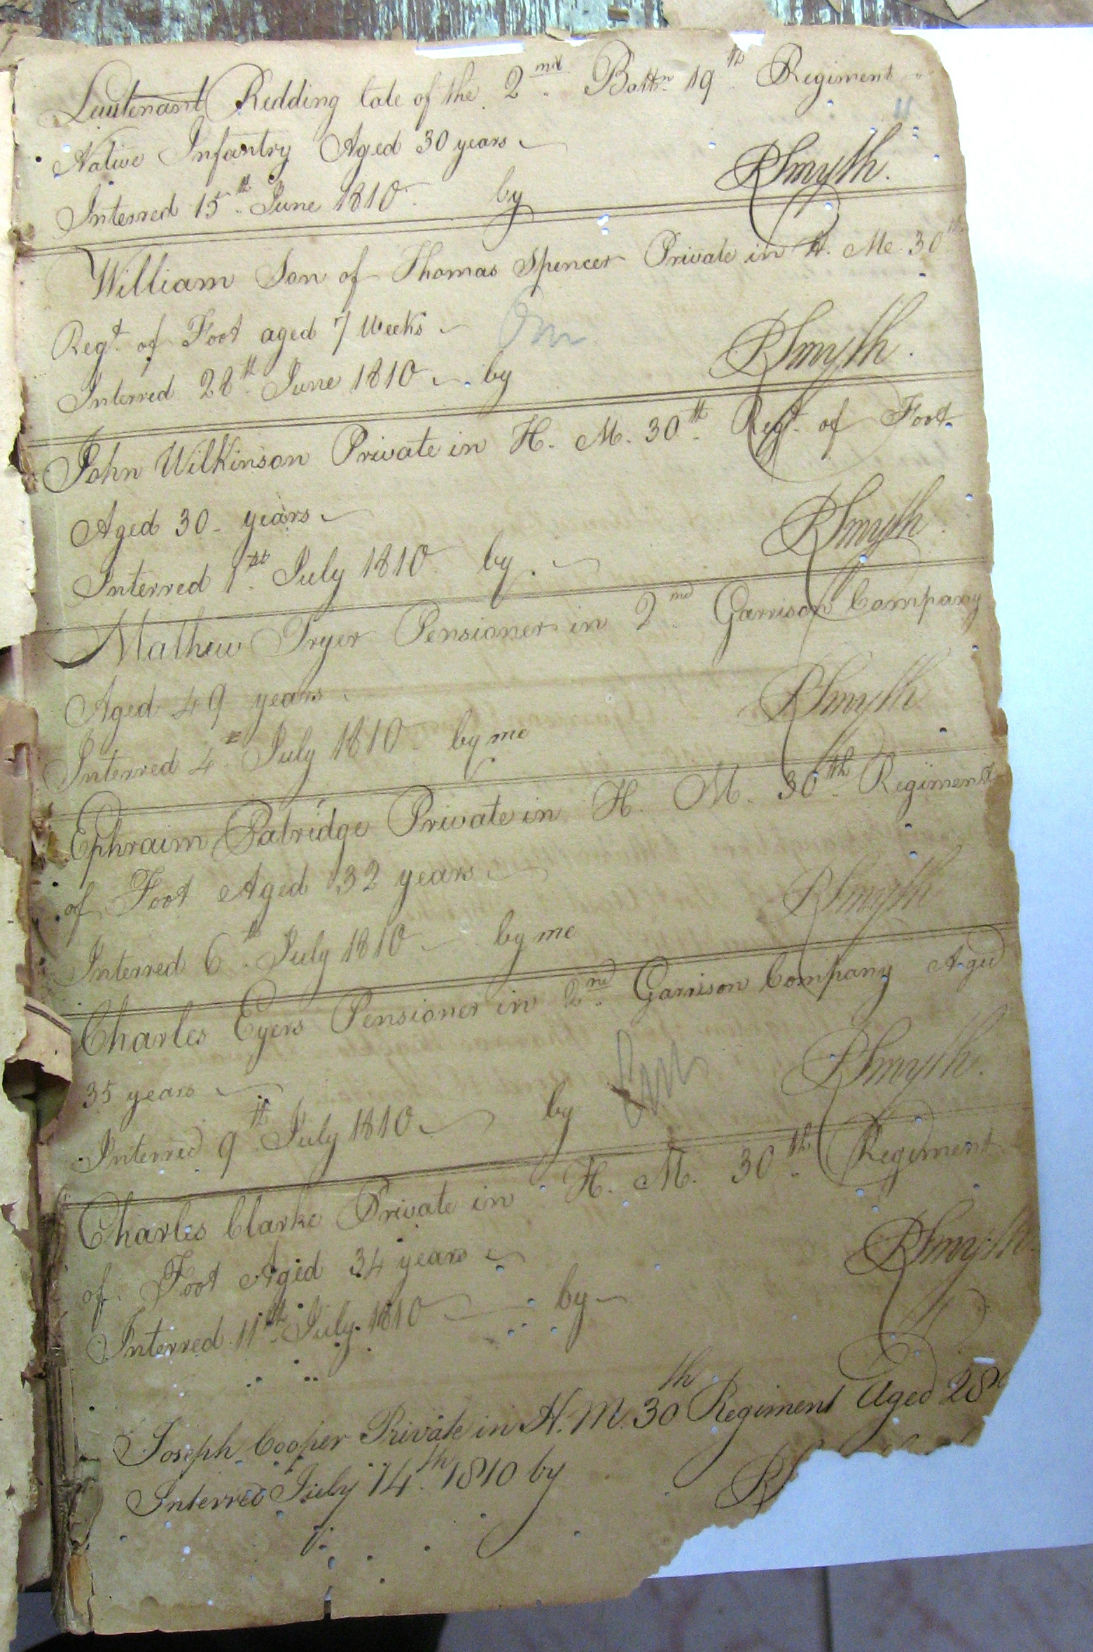 Lieutenant Redding late of the 2nd Battn 19th Regiment
11
Native Infantry Aged 30 years
Interred 15th June 1810 by RSmyth.
William Son of Thomas Spencer Private in H. Ms. 30th
Regt. of Foot aged 7 Weeks
Interred 28th June 1810 by RSmyth.
John Wilkinson Private in H. M. 30th Regt. of Foot
Aged 30 years
Interred 1st July 1810 by RSmyth.
Mathew Fryer Pensioner in 2nd Garrison Company
Aged 49 years
Interred 4th July 1810 by me RSmyth
Ephraim Patridge Private in H. M. 30th Regiment
of Foot Aged 32 years
Interred 6th July 1810 by me RSmyth
Charles Eyers Pensioner in 2nd Garrison Company Aged
35 years
Interred 9th July 1810 by RSmyth.
Charles Clarke Private in H. M. 30th Regiment
of Foot Aged 34 years
Interred 11th July 1810 by RSmyth.
Joseph Cooper Private in H. M. 30th Regiment Aged 28
Interred July 14th 1810 by